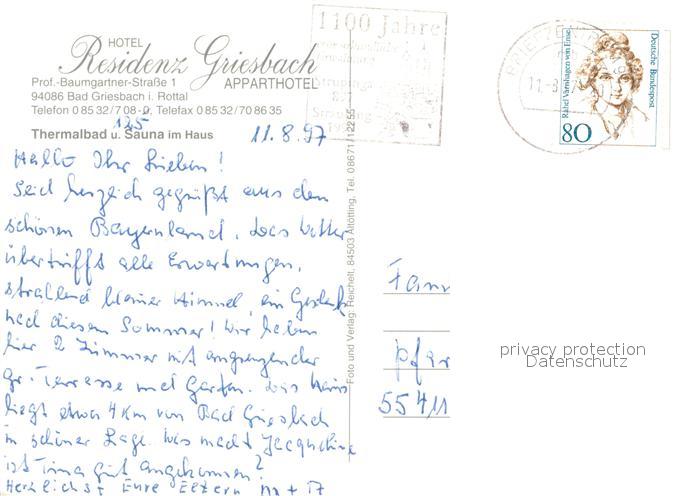 HOTEL
Residenz Griesbach
APPARTHOTEL
Prof.-Baumgartner-Straße 1
94086 Bad Griesbach i. Rottal
Telefon 0 85 32/7 08-0, Telefax 0 85 32/70 86 35
125
Thermalbad u. Sauna im Haus
11.8.97
Hallo Ihr Lieben!
Seid herzlich gegrüßt aus dem
schönen Bayernland. Das Wetter
übertrifft alle Erwartungen,
strahlend blauer Himmel, ein Geschenk
nach diesem Sommer! Wir haben
hier 2 Zimmer mit angrenzender
gr. Terrasse und Garten. Das Haus
liegt etwa 4 Km von Bad Griesbach
in schöner Lage. Was macht Jacqueline
ist Tina gut angekommen?
Herzlichst Eure Eltern
Foto und Verlag: Reichelt, 84503 Altötting, Tel. 08671/12255
1100 Jahre
Straubing
BRIEFZENTRUM
11.-8.
Rahel Varnhagen von Ense
Deutsche Bundespost
80
Fam
Pfar
55411
privacy protection
Datenschutz